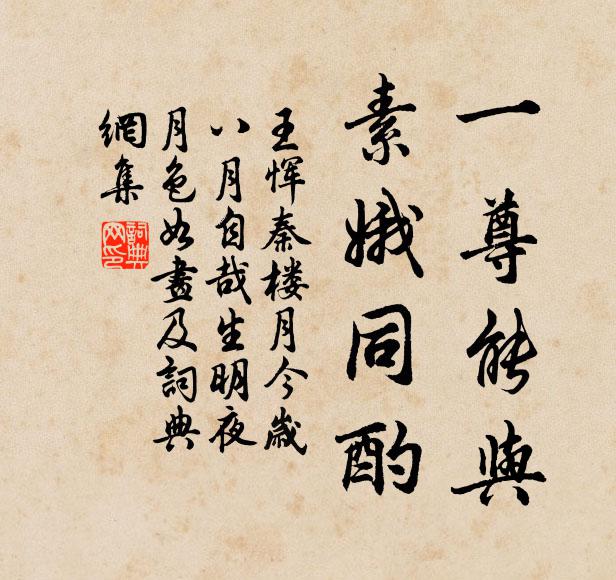 一尊能與
素娥同酌
王惲秦楼月今歲
八月自哉生明夜
月色如畫及詞典
網集
詞典網印